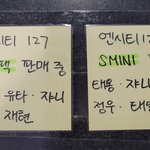 시티 127
택 판매 중
유타 · 쟈니
재현
엔시티 12
SMINI
태용 · 쟈
정우 · 태